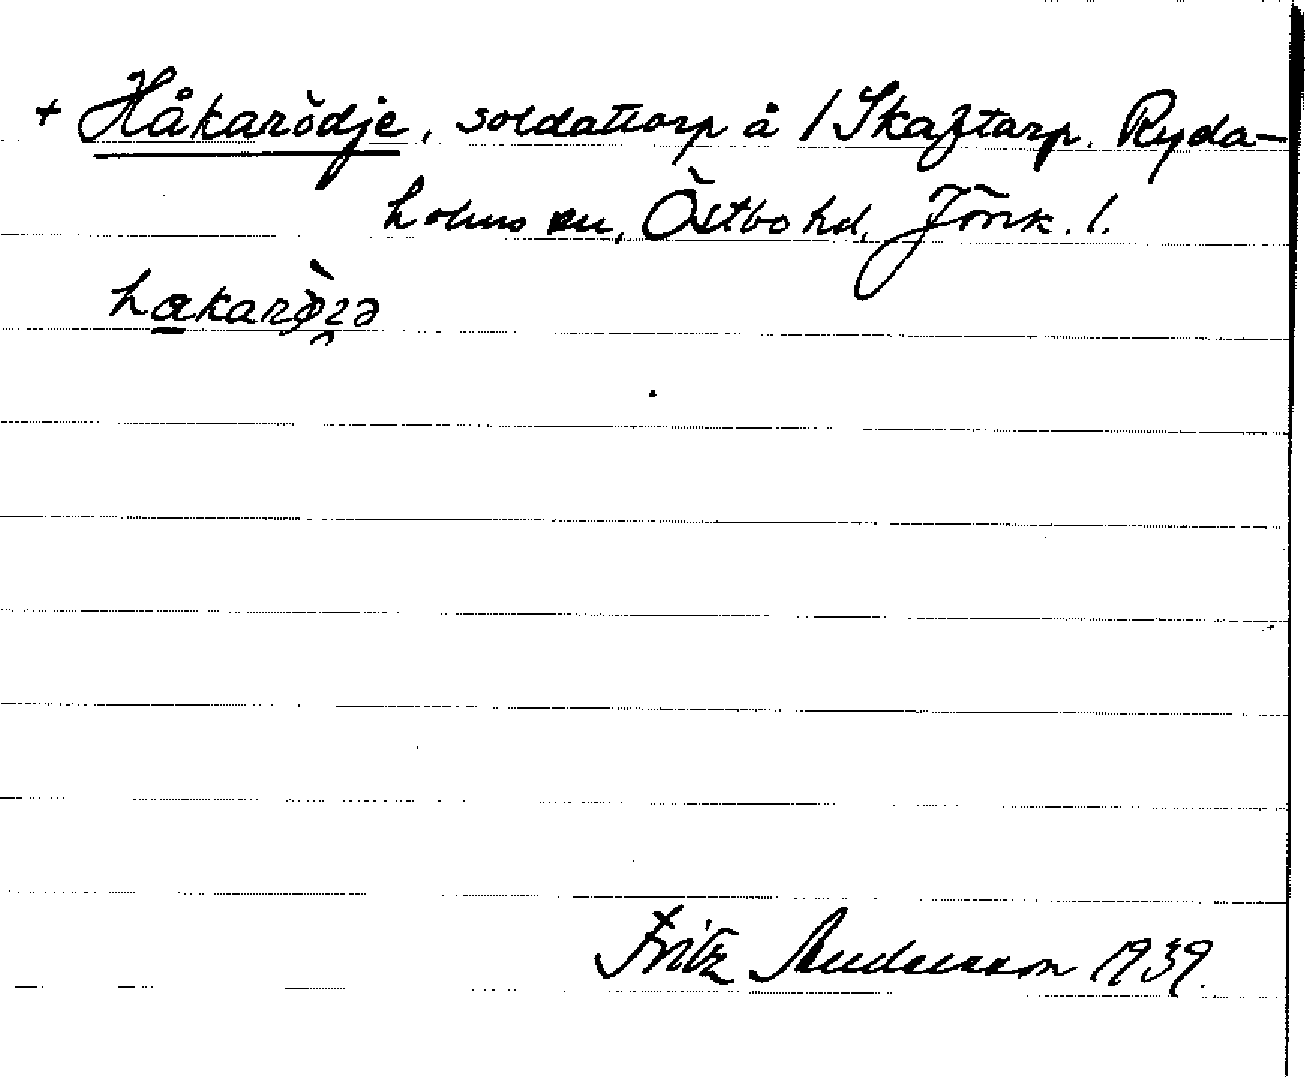 + Håkarödje, soldattorp å /Skaftarp. Ryda-
holms sn, Östbo hd, Jönk. l.
Fritz Andersson 1939.